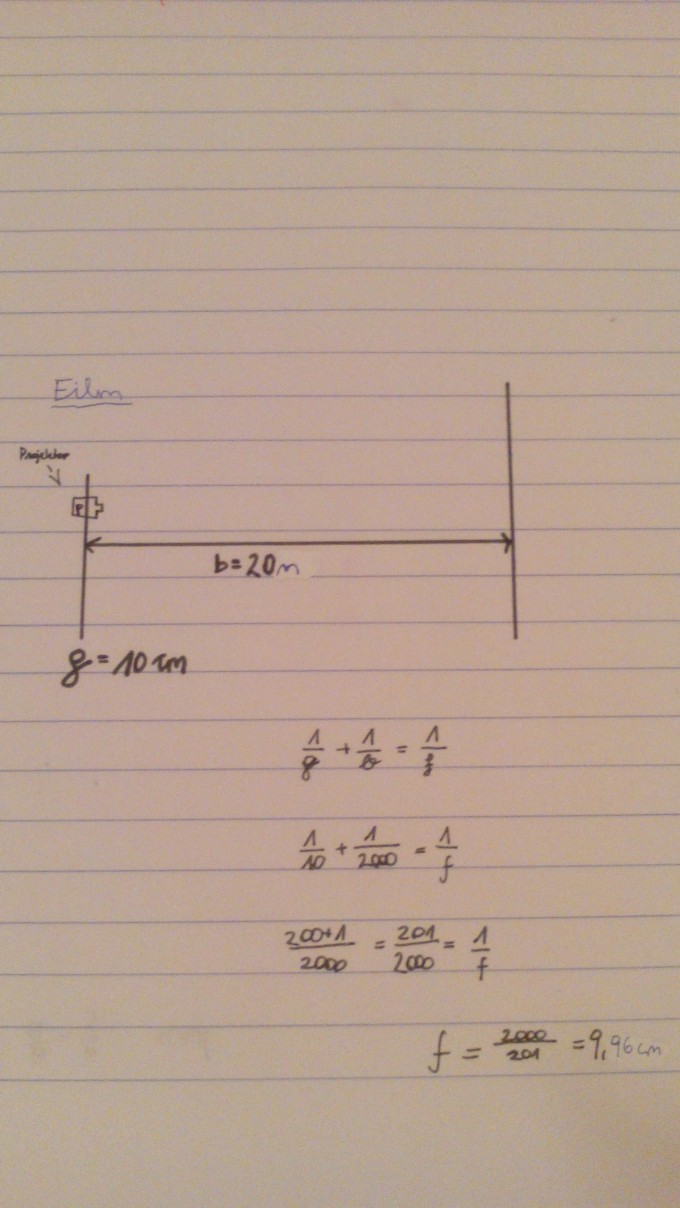 Eilm
Projektor
P
b = 20 m
g = 10 cm
1/g + 1/b = 1/f
1/10 + 1/2000 = 1/f
200+1/2000 = 201/2000 = 1/f
f = 2000/201 = 9,96 cm